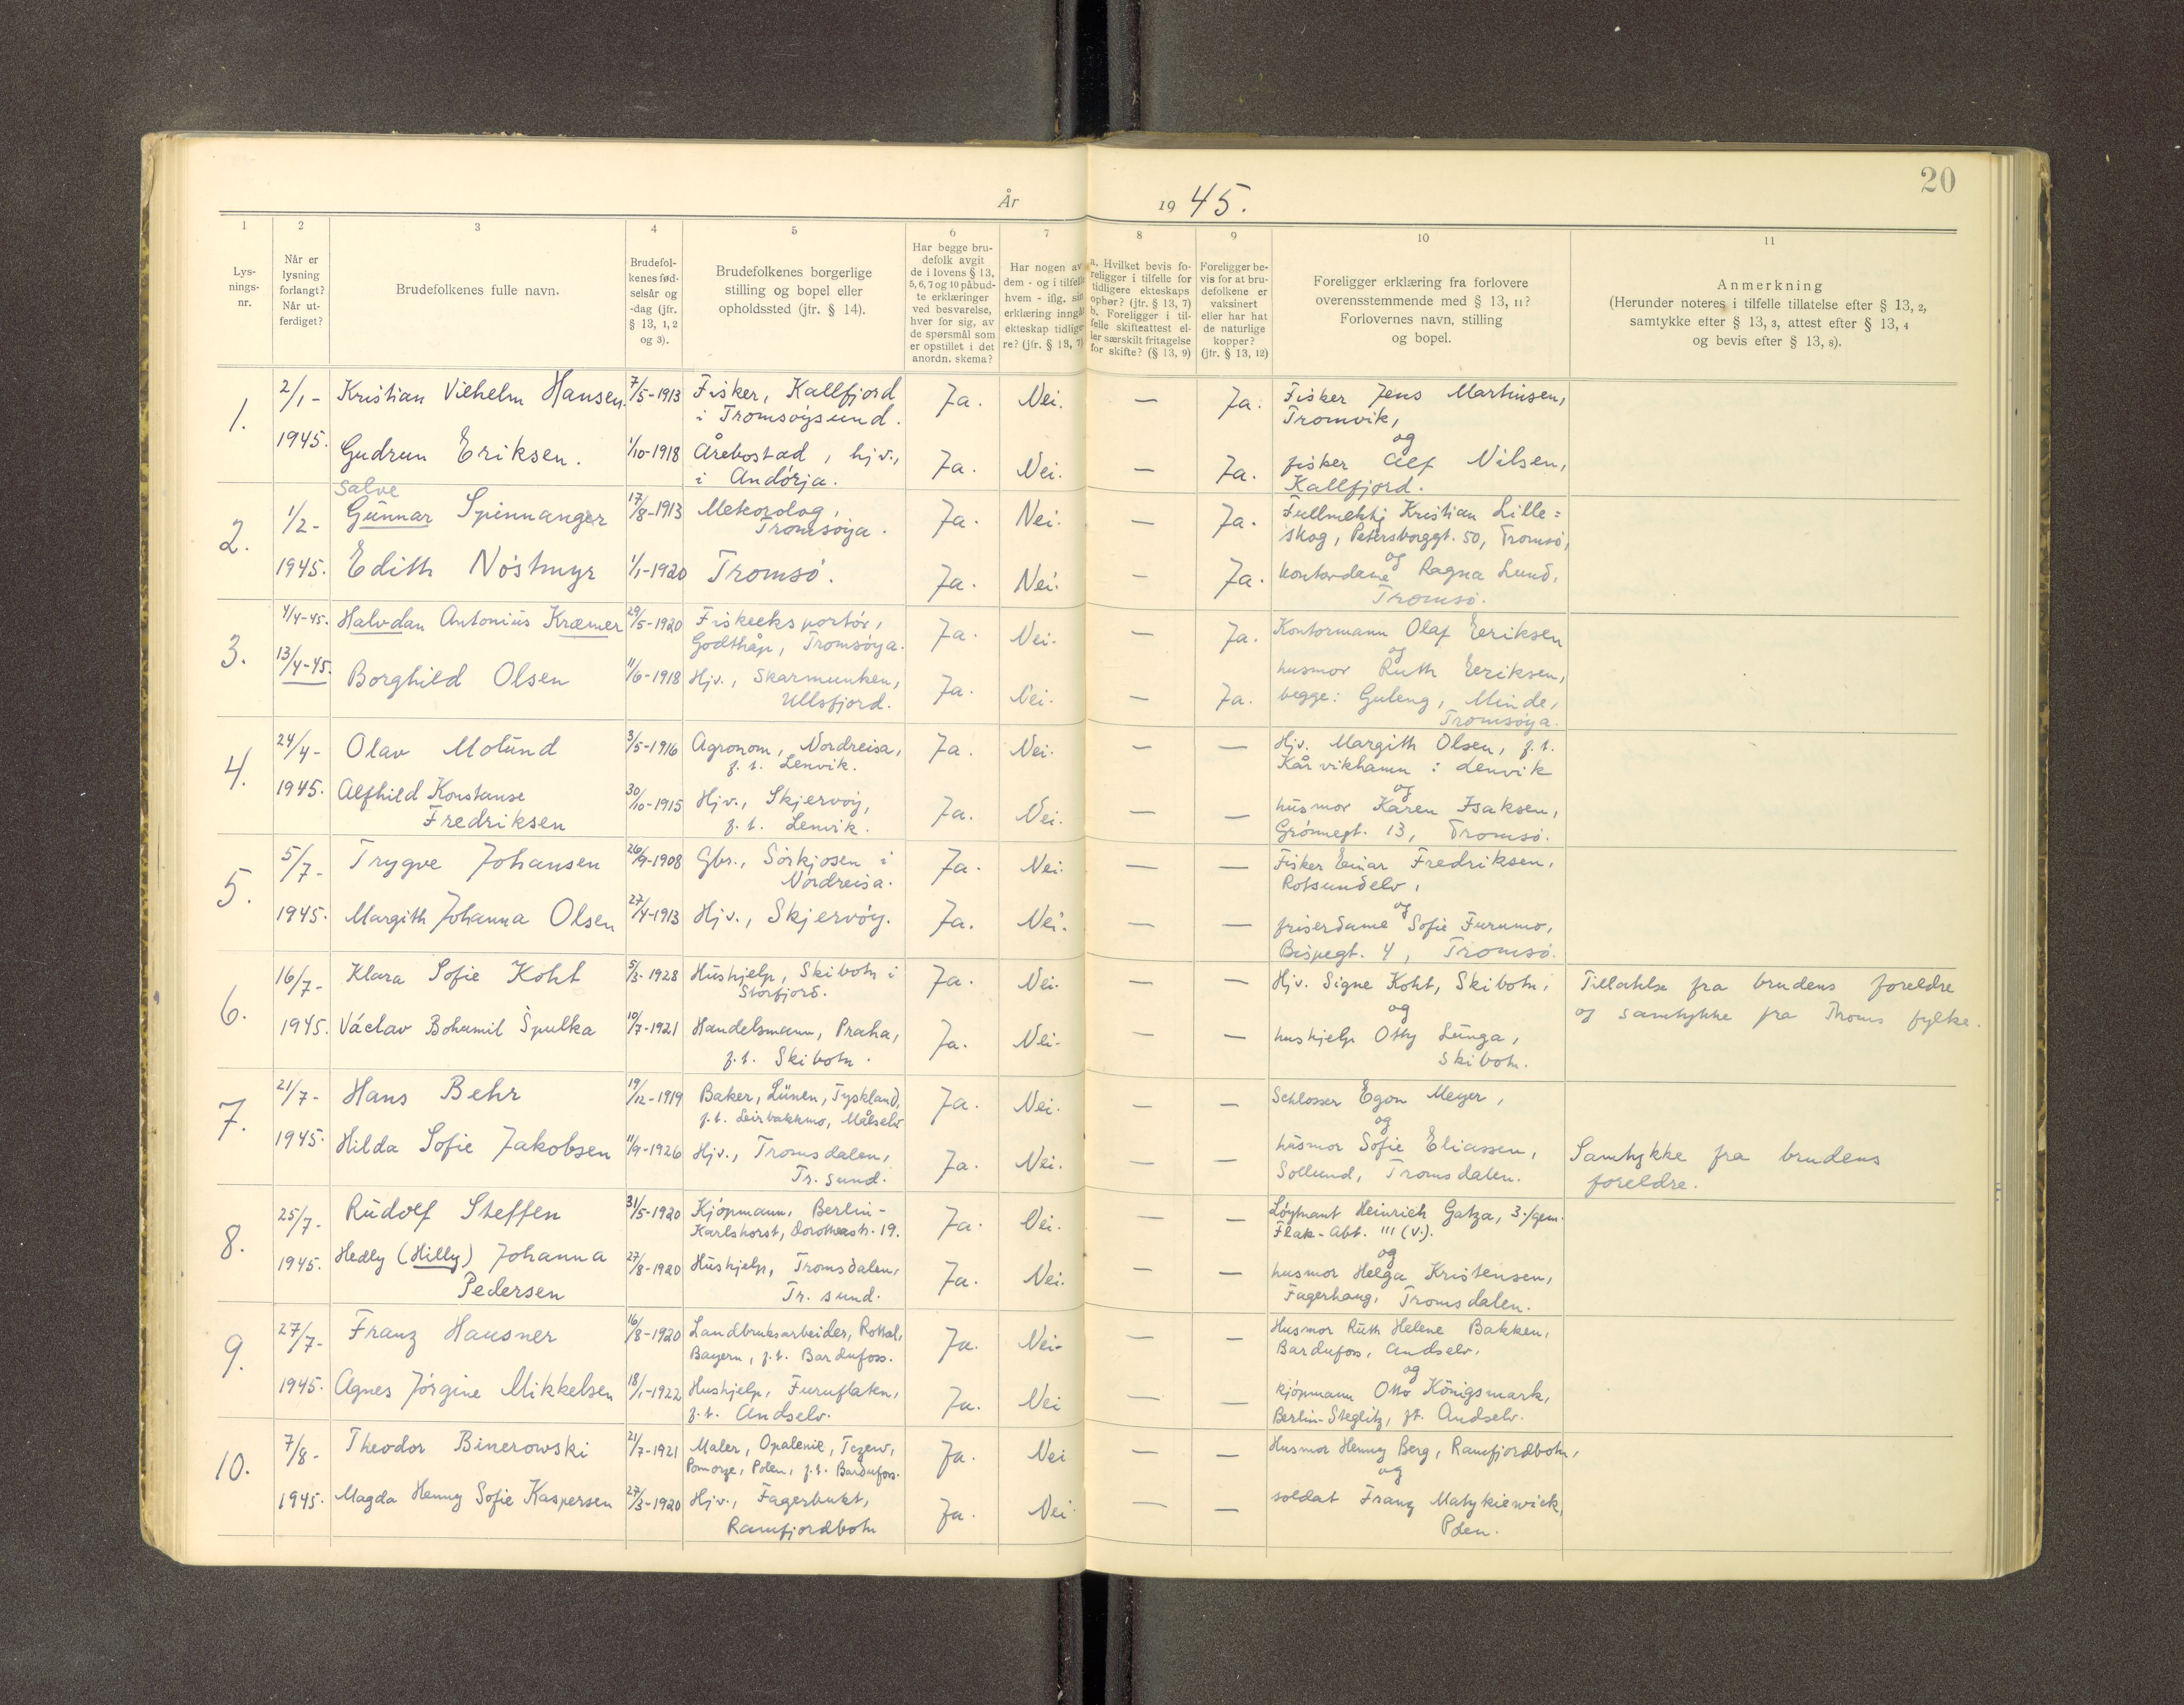 20
År 1945.
1
Lys-
nings-
nr.
2
Når er
lysning
forlangt?
Når ut-
ferdiget?
3
Brudefolkenes fulle navn.
4
Brudefol-
kenes fød-
selsår og
-dag (jfr.
§ 13, 1, 2
og 3).
5
Brudefolkenes borgerlige
stilling og bopel eller
opholdssted (jfr. § 14).
6
Har begge bru-
defolk avgit
de i lovens § 13,
5, 6, 7 og 10 påbud-
te erklæringer
ved besvarelse,
hver for sig, av
de spørsmål som
er opstillet i det
anordn. skema?
7
Har nogen av
dem - og i tilfelle
hvem - iflg. sin
erklæring inngåt
ekteskap tidlige-
re? (jfr. § 13, 7)
8
a. Hvilket bevis fo-
religger i tilfelle for
tidligere ekteskaps
ophør? (jtr. § 13, 7)
b. Foreligger i til-
felle skifteattest el-
ler særskilt fritagelse
for skifte? (§ 13, 9)
9
Foreligger be-
vis for at bru-
defolkene er
vaksinert
eller har hat
de naturlige
kopper?
(jtr. § 13, 12)
10
Foreligger erklæring fra forlovere
overensstemmende med § 13, 11?
Forlovernes navn, stilling
og bopel.
11
Anmerkning
(Herunder noteres i tilfelle tillatelse efter § 13, 2,
samtykke efter § 13, 3, attest efter § 13, 4
og bevis efter § 13, 8).
1. 2/1- Kristian Vilhelm Hansen. 7/5-1913 Fisker, Kallfjord Ja. Nei. — Ja. Fisker Jens Martinsen,
i Tromsøysund. Tromvik,
og
1945. Gudrun Eriksen. 1/10-1918 Årebostad, hjv., Ja. Nei. — Ja. fisker Alf Nilsen,
i Andørja. Kallfjord.
Salve
2. 1/2- Gunnar Spinnanger 17/8-1913 Meteorolog, Ja. Nei. — Ja. Fullmektig Kristian Lille=
Tromsøya. skog, Petersborggt. 50, Tromsø,
og
1945. Edith Nøstmyr 1/1-1920 Tromsø. Ja. Nei. — Ja. kontordame Ragna Lund,
Tromsø.
3. 4/4-45. Halvdan Antonius Kræmer 29/5-1920 Fiskeeksportør, Ja. Nei. — Ja. Kontormann Olaf Eriksen
Godthåp, Tromsøya. og
13/4-45. Borghild Olsen 11/6-1918 Hjv., Skarmunken, Ja. Nei. — Ja. husmor Ruth Eriksen,
Ullsfjord. begge: Guleng, Minde,
Tromsøya.
4. 24/4- Olav Molund 3/5-1916 Agronom, Nordreisa, Ja. Nei. — — Hjv. Margith Olsen, f.t.
f.t. Lenvik. Kårvikhamn i Lenvik
og
1945. Alfhild Konstanse 30/10-1915 Hjv., Skjervøy, Ja. Nei. — — husmor Karen Isaksen,
Fredriksen f.t. Lenvik. Grønnegt. 13, Tromsø.
5. 5/7- Trygve Johansen 26/9-1908 Gbr., Sørkjosen i Ja. Nei. — — Fisker Einar Fredriksen,
Nordreisa. Rotsundelv,
og
1945. Margith Johanna Olsen 27/4-1913 Hjv., Skjervøy. Ja. Nei. — — friserdame Sofie Furumo,
Bispegt. 4, Tromsø.
6. 16/7- Klara Sofie Koht 5/3-1928 Hushjelp, Skibotn i Ja. Nei. — — Hjv. Signe Koht, Skibotn, Tillatelse fra brudens foreldre
Storfjord. og og samtykke fra Troms fylke.
1945. Václav Bohumil Špulka 10/7-1921 Handelsmann, Praha, Ja. Nei. — — hushjelp Otty Lunga,
f.t. Skibotn. Skibotn.
7. 21/7- Hans Behr 19/12-1919 Baker, Lünen, Tyskland, Ja. Nei. — — Schlosser Egon Meyer,
f.t. Leirbakkmo, Målselv og
1945. Hilda Sofie Jakobsen 11/9-1926 Hjv., Tromsdalen, Ja. Nei. — — husmor Sofie Eliassen, Samtykke fra brudens
Tr. sund. Sollund, Tromsdalen. foreldre.
8. 25/7- Rudolf Steffen 31/5-1920 Kjøpmann, Berlin- Ja. Nei. — — Løytnant Heinrich Gatza, 3./gem.
Karlshorst, Dorotheastr. 19. Flak-Abt. III (v.).
og
1945. Hedly (Hilly) Johanna 27/8-1920 Hushjelp, Tromsdalen, Ja. Nei. — — husmor Helga Kristensen,
Pedersen Tr. sund. Fagerhaug, Tromsdalen.
9. 27/7- Franz Hausner 16/8-1920 Landbruksarbeider, Rottal, Ja. Nei- — — Husmor Ruth Helene Bakken,
Bayern, f.t. Bardufoss. Bardufoss, Andselv.
og
1945. Agnes Jørgine Mikkelsen 18/1-1922 Hushjelp, Furuflaten, Ja. Nei — — kjøpmann Otto Königsmark,
f.t. Andselv. Berlin-Steglitz, ft. Andselv.
10. 7/8- Theodor Binerowski 21/7-1921 Maler, Opalenie, Tczew, Ja. Nei — — Husmor Henny Berg, Ramfjordbotn,
Pomorze, Polen, f.t. Bardufoss. og
1945. Magda Henny Sofie Kaspersen 27/3-1920 Hjv., Fagerbukt, Ja. Nei — — soldat Franz Matykiewick,
Ramfjordbotn Polen.